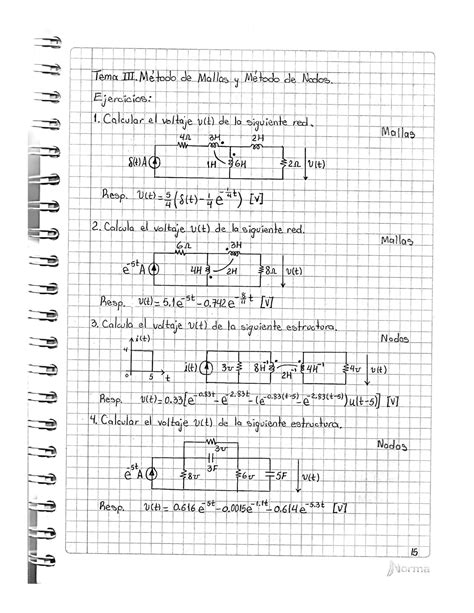 Tema III. Método de Mallas y Método de Nodos.
Ejercicios:
1. Calcular el voltaje v(t) de la siguiente red.
Mallas
4Ω 3H 2H
δ(t)A 1H 6H 2Ω v(t)
Resp. v(t)=5/4(δ(t)-1/4 e^-1/4t) [V]
2. Calcula el voltaje v(t) de la siguiente red.
Mallas
6Ω 3H
e^-5t A 4H 2H 8Ω v(t)
Resp. v(t)=5.1e^-5t-0.742e^-8/11t [V]
3. Calcula el voltaje v(t) de la siguiente estructura.
Nodos
i(t)
4
0 5 t
i(t) 3℧ 8H^-1 2H^-1 4H^-1 4℧ v(t)
Resp. v(t)=0.33[e^-0.83t-e^-2.83t-(e^-0.83(t-5)-e^-2.83(t-5))u(t-5)] [V]
4. Calcular el voltaje v(t) de la siguiente estructura.
Nodos
3℧
3F
e^-5t A 8℧ 6℧ 5F v(t)
Resp. v(t)=0.616e^-5t-0.0015e^-1.1t-0.614e^-5.3t [V]
15
Norma